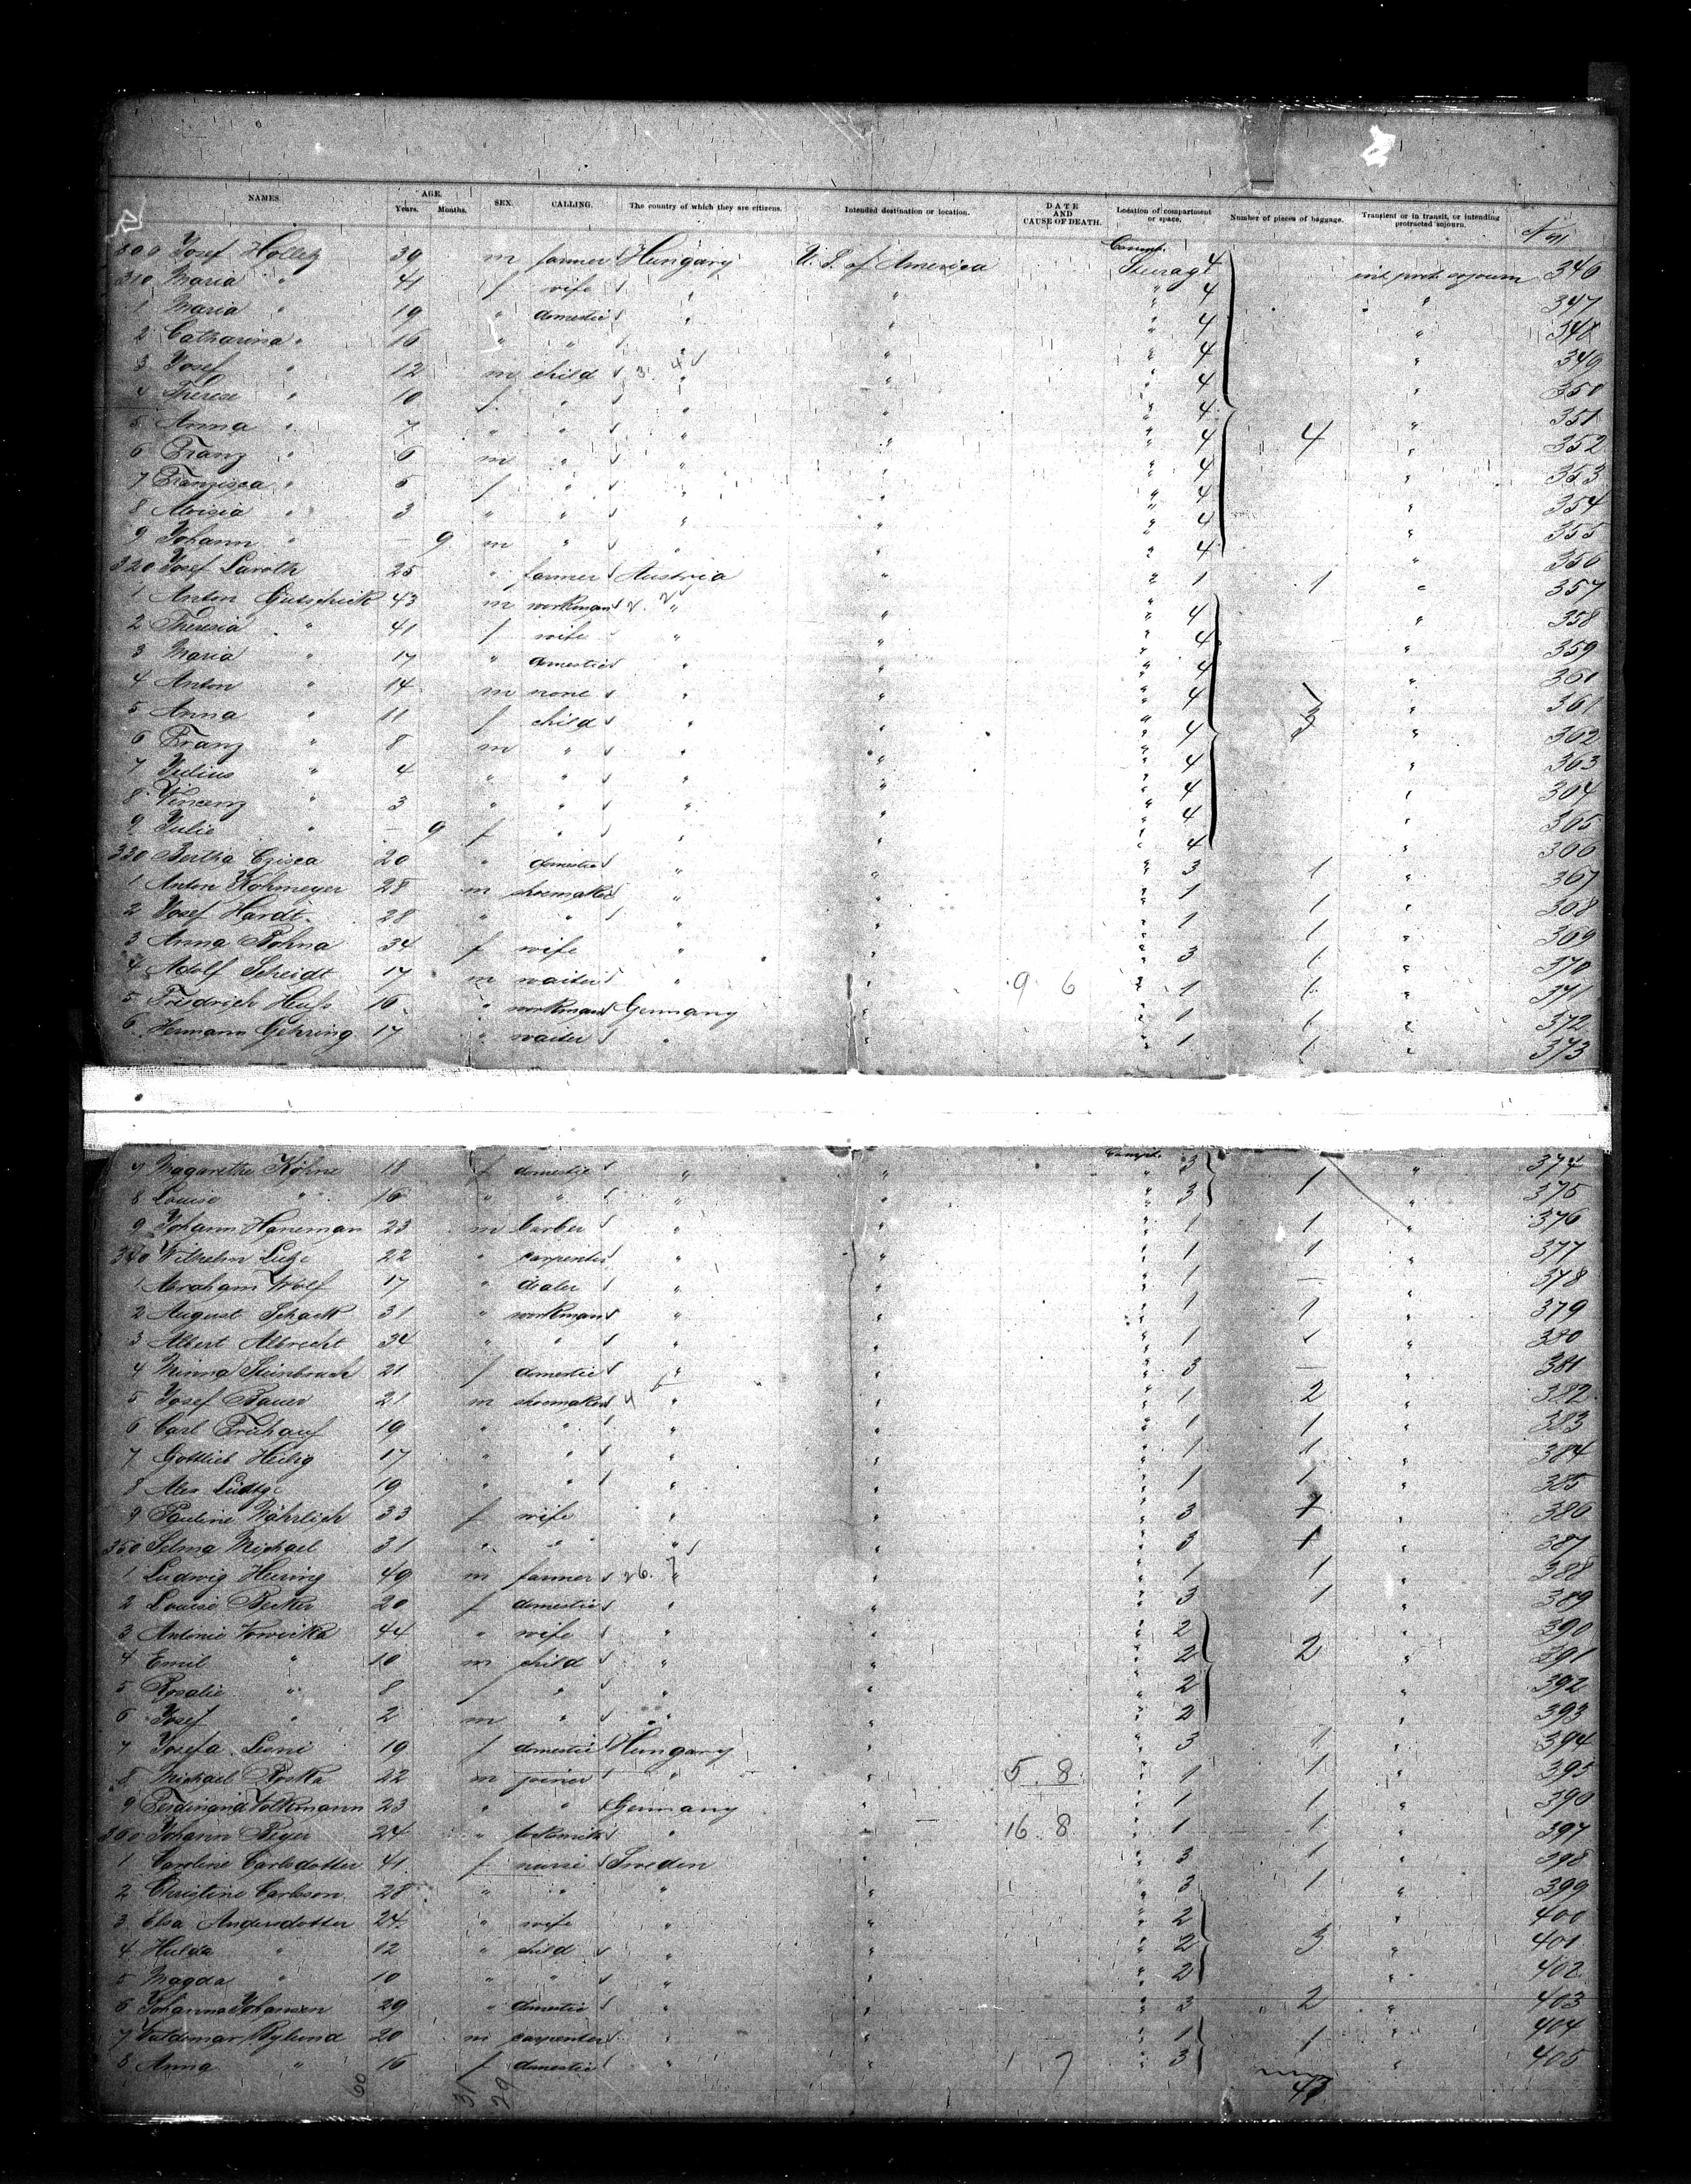 NAMES. AGE. Years. Months. SEX. CALLING. The country of which they are citizens. Intended destination or location. DATE AND CAUSE OF DEATH. Location of compartment or space. Number of pieces of baggage. Transient or in transit, or intending protracted sojourn.
Josef 39 m farmer Hungary U. S. of America Compt. Steerage 4 int. prot. sojourn 346
310 Maria " 41 f wife " " " 4 347
1 Maria " 19 " domestic " " " 4 " 348
2 Catharina " 16 " " " " " 4 " 349
3 Josef " 12 m child " " " 4 " 350
4 Therese " 10 f " " " " 4 351
5 Anna " 7 " " " " " 4 4 " 352
6 Franz " 6 m " " " " 4 " 353
7 Franzisca " 5 f " " " " 4 " 354
8 Aloisia " 3 " " " " " 4 " 355
9 Johann " – 9 m " " " " 4 " 356
320 Josef Laroth 25 " farmer Austria " " 1 1 " 357
1 Anton Gutschick 43 m workman " " " 4 " 358
2 Theresia " 41 f wife " " " 4 " 359
3 Maria " 17 " domestic " " " 4 " 360
4 Anton " 14 m none " " " 4 3 " 361
5 Anna " 11 f child " " " 4 " 362
6 Franz " 8 m " " " " 4 " 363
7 Julius " 4 " " " " " 4 " 364
8 Vincenz " 3 " " " " " 4 " 365
9 Julie " – 9 f " " " " 4 " 366
330 Bertha 20 " domestic " " " 3 1 " 367
1 Anton Kohmeyer 28 m shoemaker " " " 1 1 " 368
2 Josef Hardt 28 " " " " " 1 1 " 369
3 Anna 34 f wife " " " 3 1 " 370
4 Adolf Scheidt 17 m waiter " " 9 6 " 1 1 " 371
5 Friedrich 16 " workman Germany " " 1 1 " 372
6 Hermann Gehring 17 " waiter " " " 1 1 " 373
7 Magarethe Köhne 18 f domestic " " Compt. " 3 1 " 374
8 Louise " 16 " " " " " 3 " 375
9 Johann Haneman 23 m barber " " " 1 1 " 376
340 Wilhelm 22 " carpenter " " " 1 1 " 377
1 Abraham Wolf 17 " dealer " " " 1 – " 378
2 August Schack 31 " workman " " " 1 1 " 379
3 Albert Albrecht 34 " " " " " 1 1 " 380
4 Minna Steinbrach 21 f domestic " " " 3 – " 381
5 Josef Bauer 21 m shoemaker " " " 1 2 " 382
6 Carl Frühauf 19 " " " " " 1 1 " 383
7 Gottlieb Heilig 17 " " " " " 1 1 " 384
8 Alex 19 " " " " " 1 1 " 385
9 Pauline 33 f wife " " " 3 1 " 386
350 Selma Michael 31 " " " " " 3 1 " 387
1 Ludwig Hering 49 m farmer " " " 1 1 " 388
2 Louise Becker 20 f domestic " " " 3 1 " 389
3 Antonie 44 " wife " " " 2 " 390
4 Emil " 10 m child " " " 2 2 " 391
5 Rosalie " 8 f " " " " 2 " 392
6 Josef " 2 m " " " " 2 " 393
7 Josefa 19 f domestic Hungary " " 3 1 " 394
8 Michael 22 m joiner " " 5 8 " 1 1 " 395
9 Ferdinand Volkmann 23 " " Germany " " 1 1 " 396
360 Johann Beyer 24 " " " 16 8 " 1 1 " 397
1 Caroline Carlsdotter 41 f nurse Sweden " " 3 1 " 398
2 Christine Carlsson 28 " " " " " 3 1 " 399
3 Elsa Andersdotter 24 " wife " " " 2 " 400
4 Hulda " 12 " child " " " 2 3 " 401
5 Magda " 10 " " " " " 2 " 402
6 Johanna Johansen 29 " domestic " " " 3 2 " 403
7 Waldemar Bylund 20 m carpenter " " " 1 1 " 404
8 Anna " 16 f domestic " " 1 7 " 3 " 405
60 31 29 43